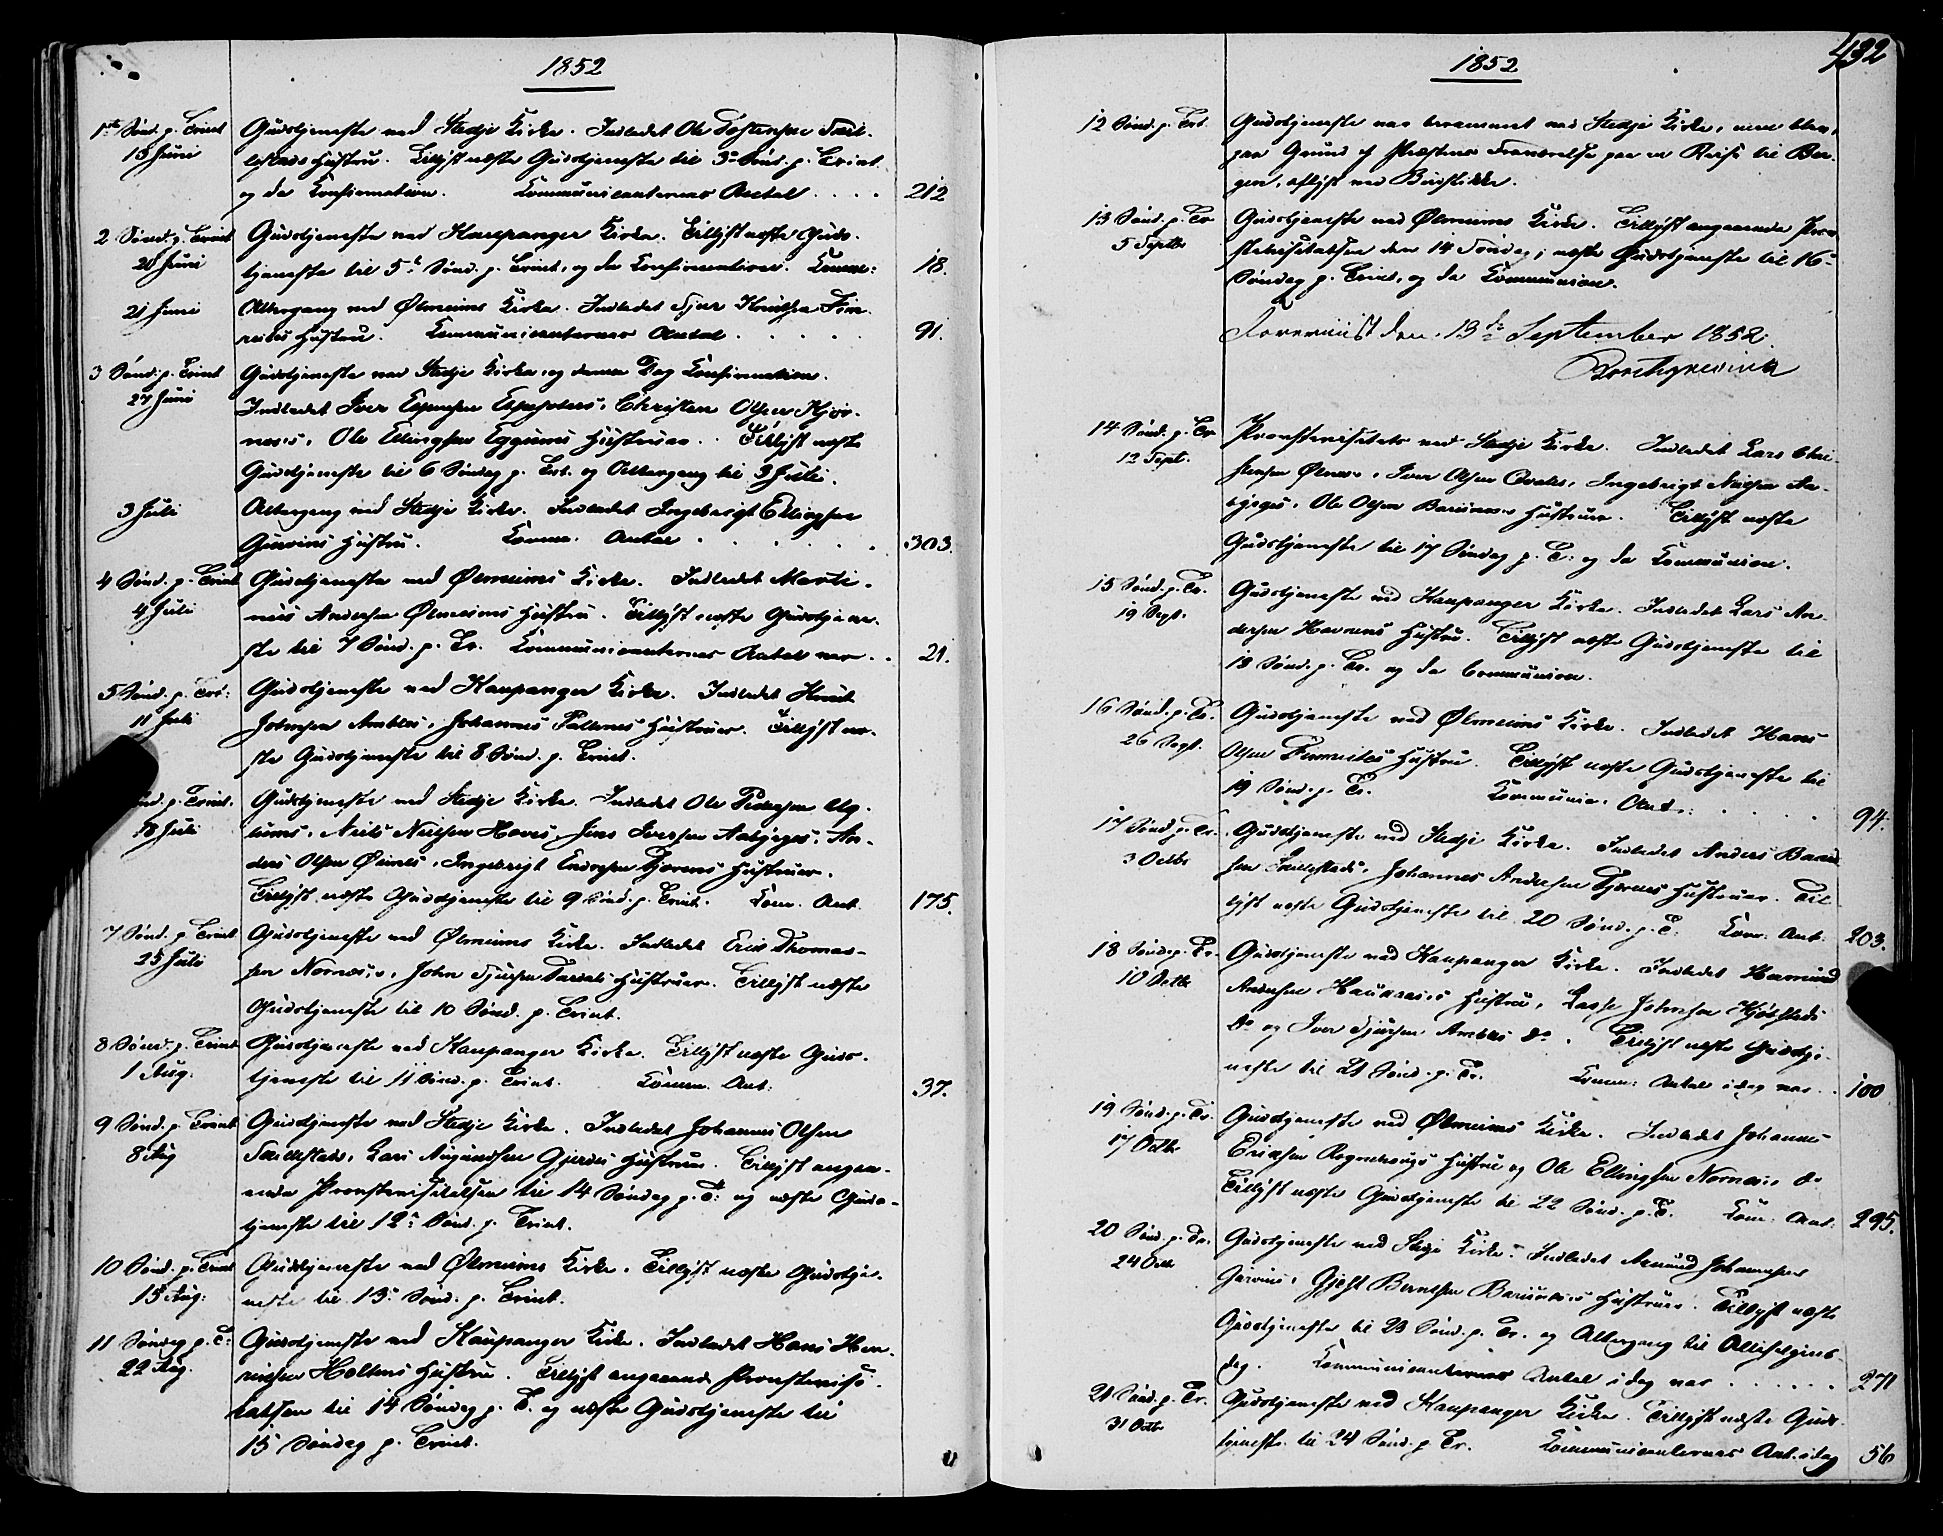 1852
1ste Sønd. p. Trinit Gudstjeneste ved Stedje Kirke. Indledet Ole Tostensen
13 Juni Hustru. Tillyst næste Gudstjeneste til 3die Sønd. p. Trinit.
og da Confirmation. Communicanternes Antal .... 212
2 Sønd. p. Trinit Gudstjeneste ved Kaupanger Kirke. Tillyst næste Guds-
20 Juni tjeneste til 5te Sønd. p. Trinit, og da Confirmation. Comm: 18.
21 Juni Altergang ved Ølmeims Kirke. Indledet Sjur Knutsen Fim-
reites Hustru. Communicanternes Antal . . . . 91.
3 Sønd. p. Trinit Gudstjeneste ved Stedje Kirke, og denne Dag Confirmation.
27 Juni Indledet Iver Espesen Christen Olsen Kjør-
næs's, Ole Ellingsen Eggums Hustruer. Tillyst næste
Gudstjeneste til 6 Søndag p. Trt. og Altergang til 3 Juli.
3 Juli Altergang ved Stedje Kirke. Indledet Ingebrigt Ellingsen
Gurvins Hustru. Comm. Antal . . . . 303.
4 Sønd. p. Trinit Gudstjeneste ved Ølmeims Kirke. Indledet Marti-
4 Juli nus Andersen Ølmeims Hustru. Tillyst næste Gudstjene-
ste til 7 Sønd. p. Tr. Communicanternes Antal var . . 21.
5 Sønd. p. Trt: Gudstjeneste ved Kaupanger Kirke. Indledet Knut
11 Juli Johnsen Ambles, Johannes Hustruer. Tillyst næ-
ste Gudstjeneste til 8 Sønd. p. Trinit.
p. Trinit. Gudstjeneste ved Stedje Kirke. Indledet Ole Pedersen
18 Juli Niels Nielsen Hoves, Jens Iversen Aabjøges, An-
ders Olsen Ingebrigt Hustruer.
Tillyst næste Gudstjeneste til 9 Sønd. p. Trinit. Com. Ant. 175.
7 Sønd. p. Trinit Gudstjeneste ved Ølmeims Kirke. Indledet Erik Thomas-
25 Juli sen Nornæs's, John Sjursen Hustruer. Tillyst næste
Gudstjeneste til 10 Sønd. p. Trinit.
8 Sønd. p. Trinit Gudstjeneste ved Kaupanger Kirke. Tillyst næste Guds-
1 Aug. tjeneste til 11 Sønd. p. Trinit. Comm. Ant: 37.
9 Sønd. p. Trinit Gudstjeneste ved Stedje Kirke. Indledet Johannes Olsen
8 Aug Lars Hustruer. Tillyst angaa-
ende Provstevisitatsen til 14 Søndag p. T: og næste Guds-
tjeneste til 12te Sønd. p. Trinit.
10 Sønd. p. Trinit Gudstjeneste ved Ølmeims Kirke. Tillyst næste Gudstje-
15 Aug: neste til 13de Sønd. p. Trinit.
11 Søndag p. T: Gudstjeneste ved Kaupanger Kirke. Indledet Hans Hen-
22 Aug. riksen Holtens Hustru. Tillyst angaaende Provstevisi-
tatsen til 14 Søndag p. T. og næste Gudstjeneste til
15 Søndag p. Trinit.
432
1852
12 Sønd. p. Trt. Gudstjeneste var berammet ved Stedje Kirke, men blev,
paa Grund af Præstens Fraværelse paa en Reise til Ber-
gen, aflyst ved Budstikke.
13 Sønd. p. Tr Gudstjeneste ved Ølmeims Kirke. Tillyst angaaende Prov-
5 Septbr stevisitatsen den 14 Søndag; næste Gudstjeneste til 16de
Søndag p. Trinit, og da Communion.
Foreviist den 13de September 1852.
Borchgrevink
14 Sønd. p. Tr Provstevisitats ved Stedje Kirke. Indledet Lars Chri-
12 Sept. stensen Iver Olsen Ingebrigt Nielsen Aa-
bjøges, Ole Olsen Hustruer. Tillyst næste
Gudstjeneste til 17 Søndag p. T: og da Communion.
15 Sønd. p. Tr. Gudstjeneste ved Kaupanger Kirke. Indledet Lars An-
19 Sept. dersen Havnens Hustru. Tillyst næste Gudstjeneste til
18 Sønd. p. Tr. og da Communion.
16 Sønd. p. Tr. Gudstjeneste ved Ølmeims Kirke. Indledet Hans
26 Sept. Olsen Fimreites Hustru. Tillyst næste Gudstjeneste til
19 Sønd. p. Tr. Communic. Ant.: . . . . 94.
17 Sønd. p. Tr. Gudstjeneste ved Stedje Kirke. Indledet Anders
3 Octbr Johannes Andersen Hustruer. Til-
lyst næste Gudstjeneste til 20 Sønd. p. T: Com: Ant: 203.
18 Sønd. p. Tr. Gudstjeneste ved Kaupanger Kirke. Indledet
10 Octbr Andersen Hustru, Lasse Johnsen
Do og Iver Sjursen Ambles Do. Tillyst næste Gudstje-
neste til 21 Sønd. p. Tr. Comm: Antal idag var . . 100
19 Sønd. p. Tr. Gudstjeneste ved Ølmeims Kirke. Indledet Johannes
17 Octbr Eriksen Hustru og Ole Ellingsen Nornæs's Do
Tillyst næste Gudstjeneste til 22 Sønd. p. T. Com: Ant. 295.
20 Sønd. p. Tr. Gudstjeneste ved Stedje Kirke. Indledet Amund Johannesen
24 Octbr Gurvins, Hustruer. Tillyst næste
Gudstjeneste til 23 Sønd. p. Tr. og Altergang til Allehelgens-
dag. Communicanternes Antal idag var . . . . . . 271
21 Sønd. p. Tr. Gudstjeneste ved Kaupanger Kirke. Tillyst næste Guds-
31 Octbr tjeneste til 24 Sønd. p. Tr. Communicanternes Ant. idag 56